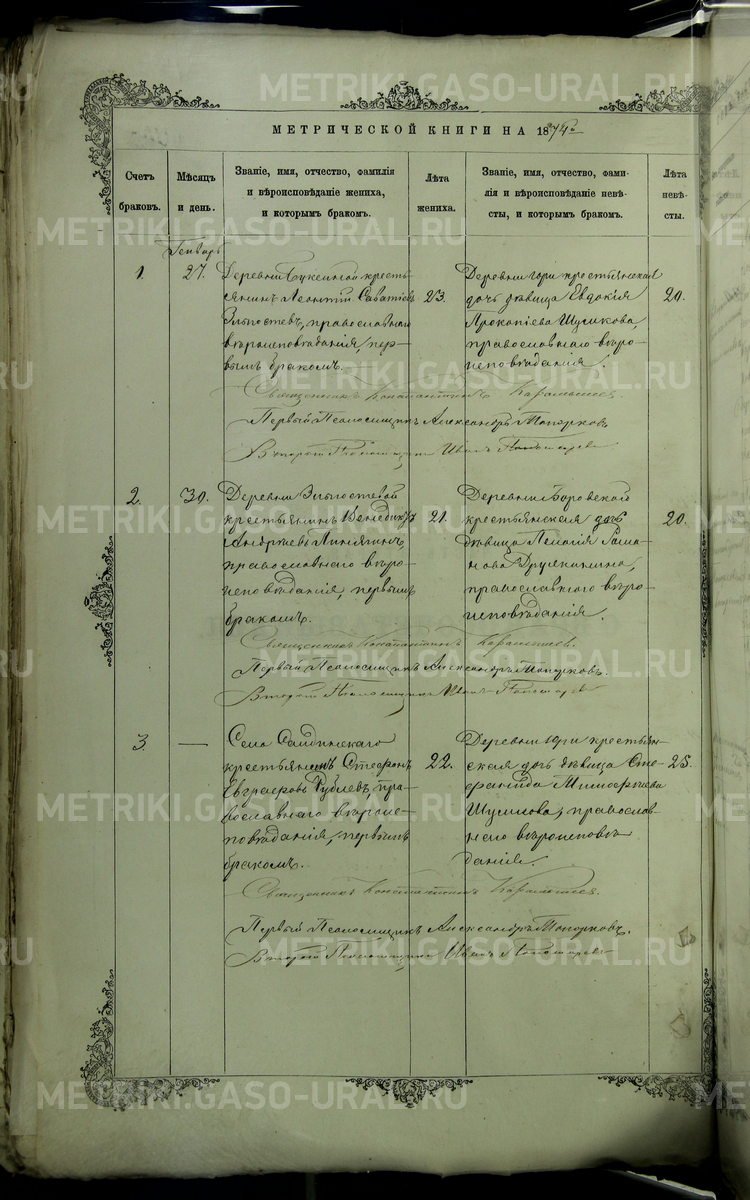 METRIKI.GASO-URAL.RU
МЕТРИЧЕСКОЙ КНИГИ НА 1874й
Счетъ браковъ.
Мѣсяцъ и день.
Званіе, имя, отчество, фамилія
и вѣроисповѣданіе жениха,
и которымъ бракомъ.
Лѣта жениха.
Званіе, имя, отчество, фами-
лія и вѣроисповѣданіе невѣ-
сты, и которымъ бракомъ.
Лѣта невѣ-
сты.
Генварь
1. 27. Деревни кресть-
янинъ Леонтій Саватіевъ 23.
православнаго
вѣроисповѣданія, пер-
вымъ бракомъ.
Деревни крестьянская
дочь дѣвица Евдокія 20.
Прокопіева
православнаго вѣро-
исповѣданія.
Священникъ Константинъ
Первый Псаломщикъ Александръ Топорковъ
Второй Псаломщикъ Иванъ
2. 30. Деревни
крестьянинъ Венедиктъ 21.
Андреевъ
православнаго вѣро-
исповѣданія, первымъ
бракомъ.
Деревни Боровскаго
крестьянская дочь 20.
дѣвица Пелагія Рома-
нова
православнаго вѣро-
исповѣданія.
Священникъ Константинъ
Первый Псаломщикъ Александръ Топорковъ.
Второй Псаломщикъ Иванъ
3. — Села
крестьянинъ Стефанъ 22.
Евграфовъ Рублевъ, пра-
вославнаго вѣроис-
повѣданія, первымъ
бракомъ.
Деревни крестьян-
ская дочь дѣвица Сте- 25.
фанида Тимофѣева
православ-
наго вѣроисповѣ-
данія.
Священникъ Константинъ
Первый Псаломщикъ Александръ Топорковъ.
Второй Псаломщикъ Иванъ